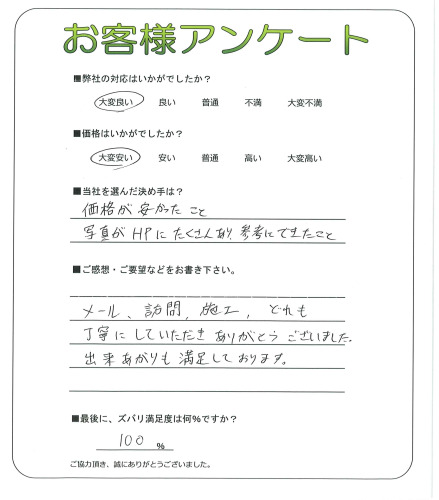 お客様アンケート
■弊社の対応はいかがでしたか？
大変良い 良い 普通 不満 大変不満
■価格はいかがでしたか？
大変安い 安い 普通 高い 大変高い
■当社を選んだ決め手は？
価格が安かったこと
写真がHPにたくさんあり参考にできたこと
■ご感想・ご要望などをお書き下さい。
メール、訪問、施工、どれも
丁寧にしていただきありがとうございました。
出来あがりも満足しております。
■最後に、ズバリ満足度は何％ですか？
100 %
ご協力頂き、誠にありがとうございました。